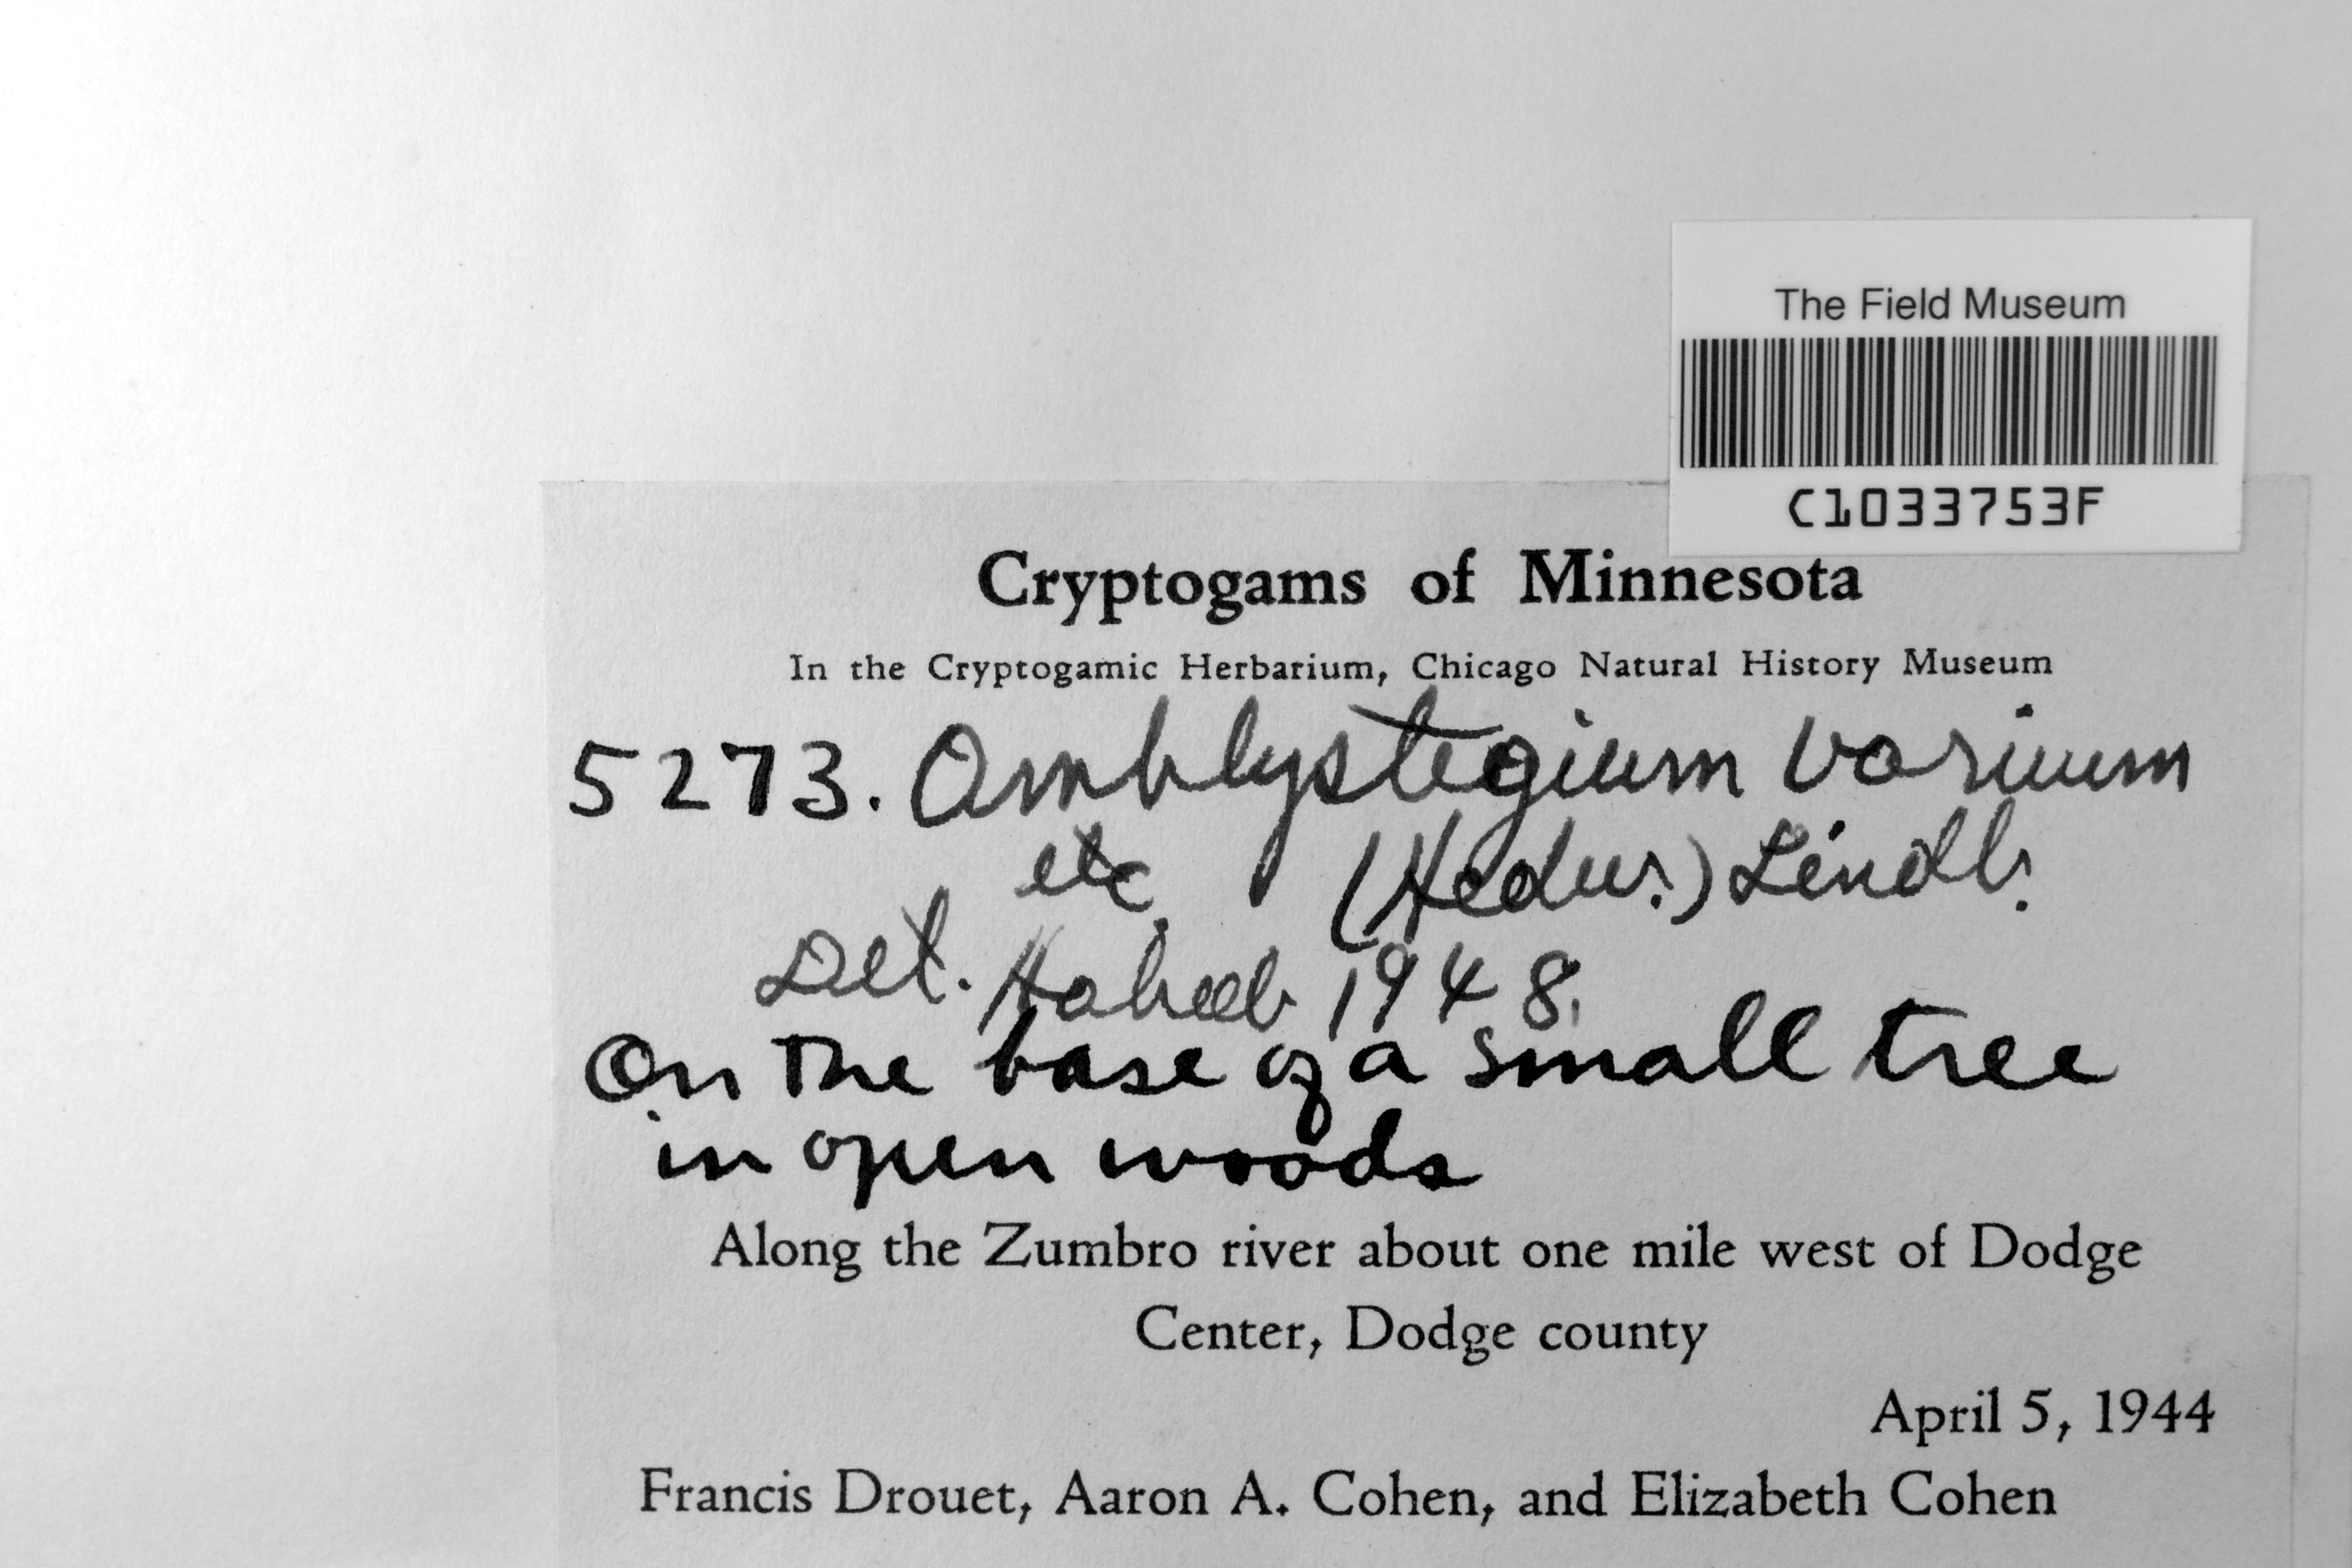 The Field Museum
C1033753F
Cryptogams of Minnesota
In the Cryptogamic Herbarium, Chicago Natural History Museum
5273. Amblystegium varium
etc. (Hedw.) Lindb.
Det. Habeeb 1948.
On the base of a small tree
in open woods
Along the Zumbro river about one mile west of Dodge
Center, Dodge county
April 5, 1944
Francis Drouet, Aaron A. Cohen, and Elizabeth Cohen